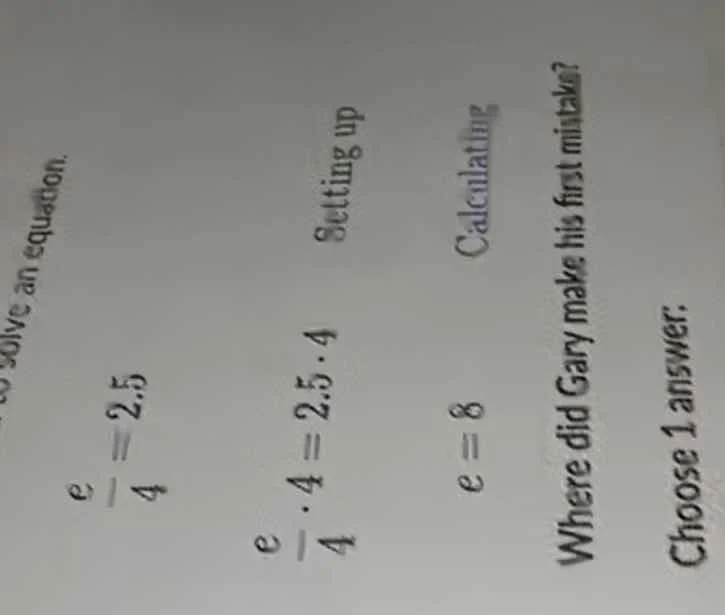 to solve an equation.
e/4 = 2.5
e/4 · 4 = 2.5 · 4 Setting up
e = 8 Calculating
Where did Gary make his first mistake?
Choose 1 answer: